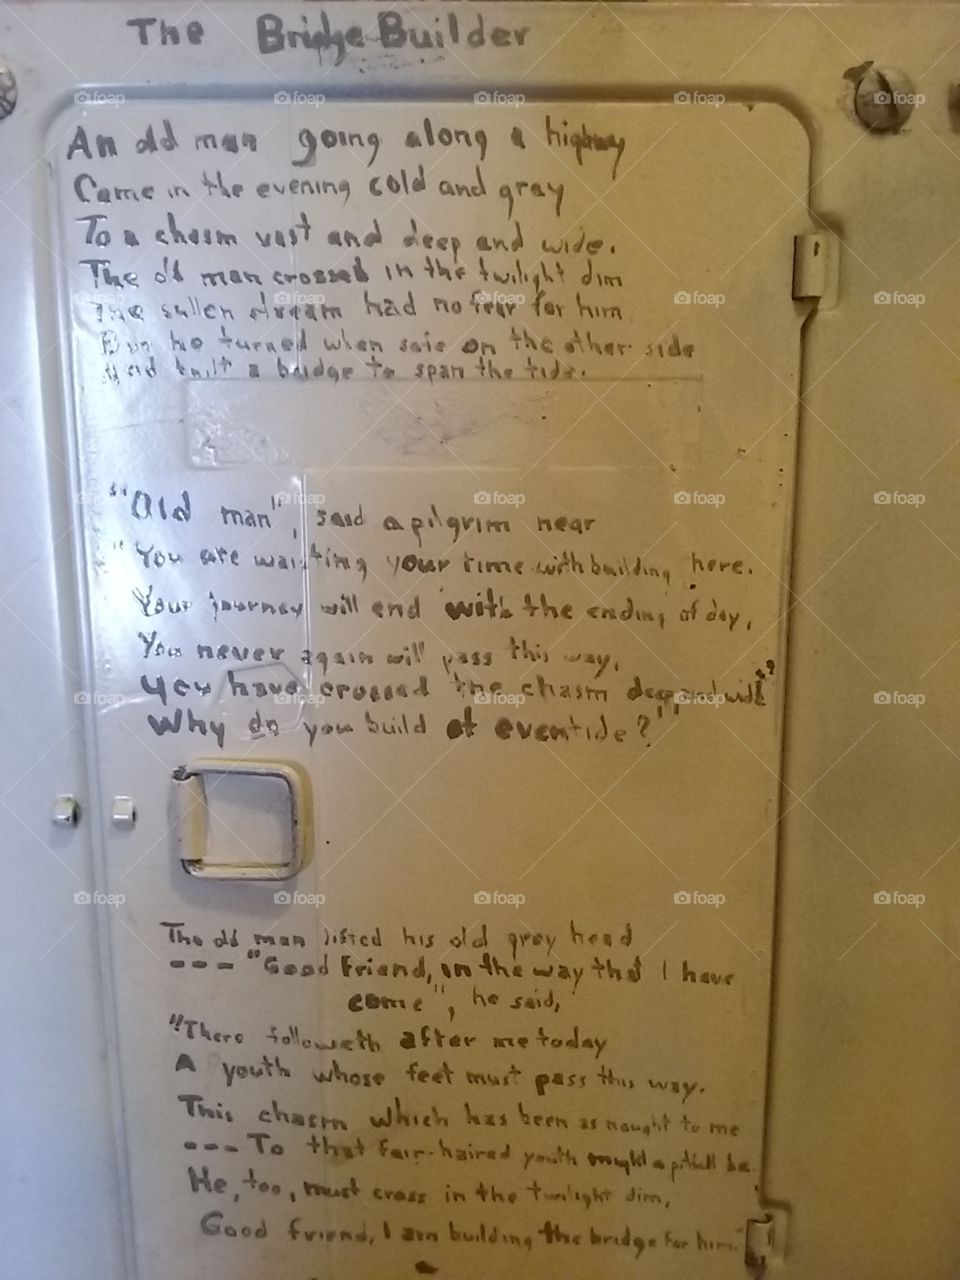 The Bridge Builder
An old man going along a highway
Came in the evening cold and gray
To a chasm vast and deep and wide.
The old man crossed in the twilight dim
The sullen stream had no fear for him
But he turned when safe on the other side
And built a bridge to span the tide.
"Old man", said a pilgrim near
"You are waisting your time with building here.
Your journey will end with the ending of day,
You never again will pass this way,
You have crossed the chasm deep and wide
Why do you build at eventide?"
The old man lifted his old gray head
--- "Good Friend, in the way that I have
come", he said,
"There followeth after me today
A youth whose feet must pass this way.
This chasm which has been as naught to me
--- To that fair-haired youth might a pitfall be.
He, too, must cross in the twilight dim,
Good friend, I am building the bridge for him."
foap